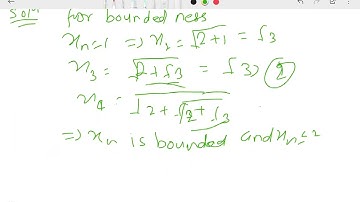 Solⁿ for bounded ness
xₙ=1 => x₂ = √2+1 = √3
x₃ = √2+√3 = √3> 2
x₄ = √2+√2+√3
=> xₙ is bounded and xₙ ≤ 2